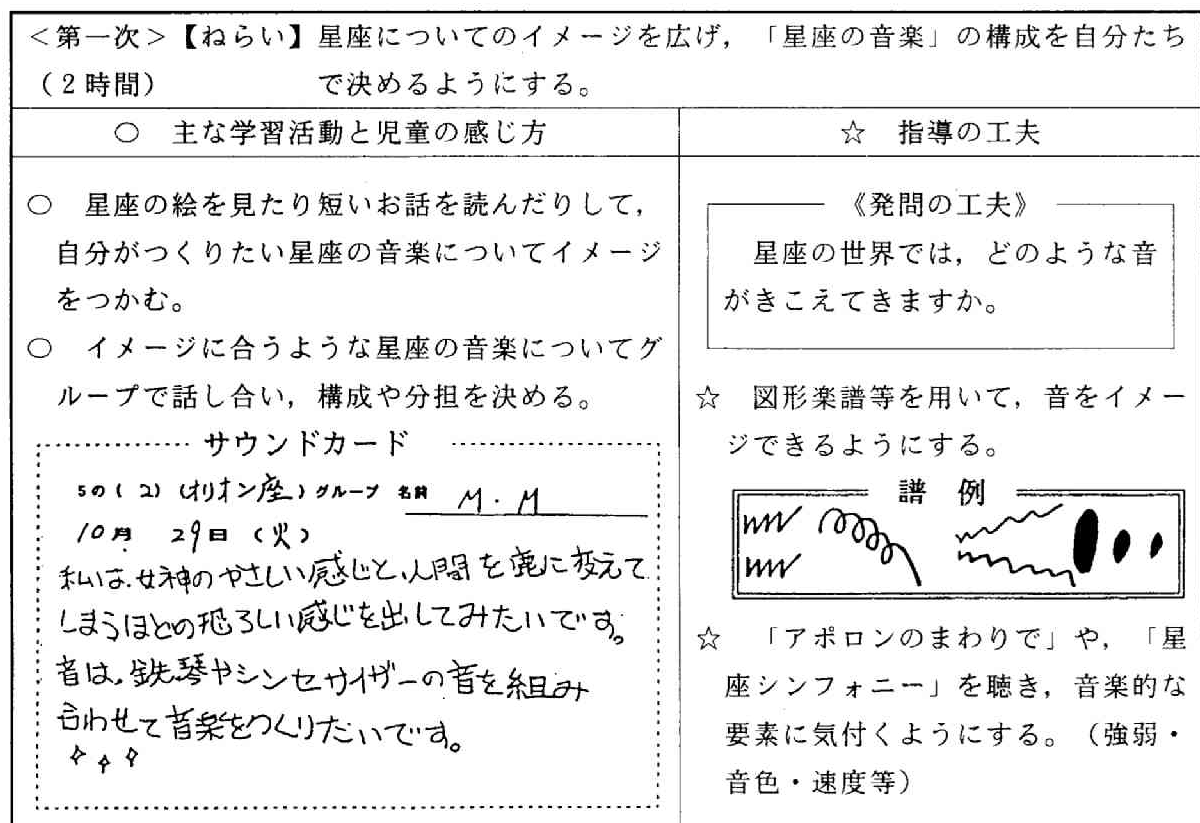 ＜第一次＞【ねらい】星座についてのイメージを広げ，「星座の音楽」の構成を自分たち
（２時間）　で決めるようにする。
○　主な学習活動と児童の感じ方
○　星座の絵を見たり短いお話を読んだりして，
自分がつくりたい星座の音楽についてイメージ
をつかむ。
○　イメージに合うような星座の音楽についてグ
ループで話し合い，構成や分担を決める。
サウンドカード
5の(2)(オリオン座)グループ 名前 M.M
10月 29日(火)
私は、女神のやさしい感じと、人間を鹿に変えて
しまうほどの恐ろしい感じを出してみたいです。
音は、鉄琴やシンセサイザーの音を組み
合わせて音楽をつくりたいです。
☆　指導の工夫
《発問の工夫》
星座の世界では，どのような音
がきこえてきますか。
☆　図形楽譜等を用いて，音をイメー
ジできるようにする。
譜 例
☆　「アポロンのまわりで」や，「星
座シンフォニー」を聴き，音楽的な
要素に気付くようにする。（強弱・
音色・速度等）